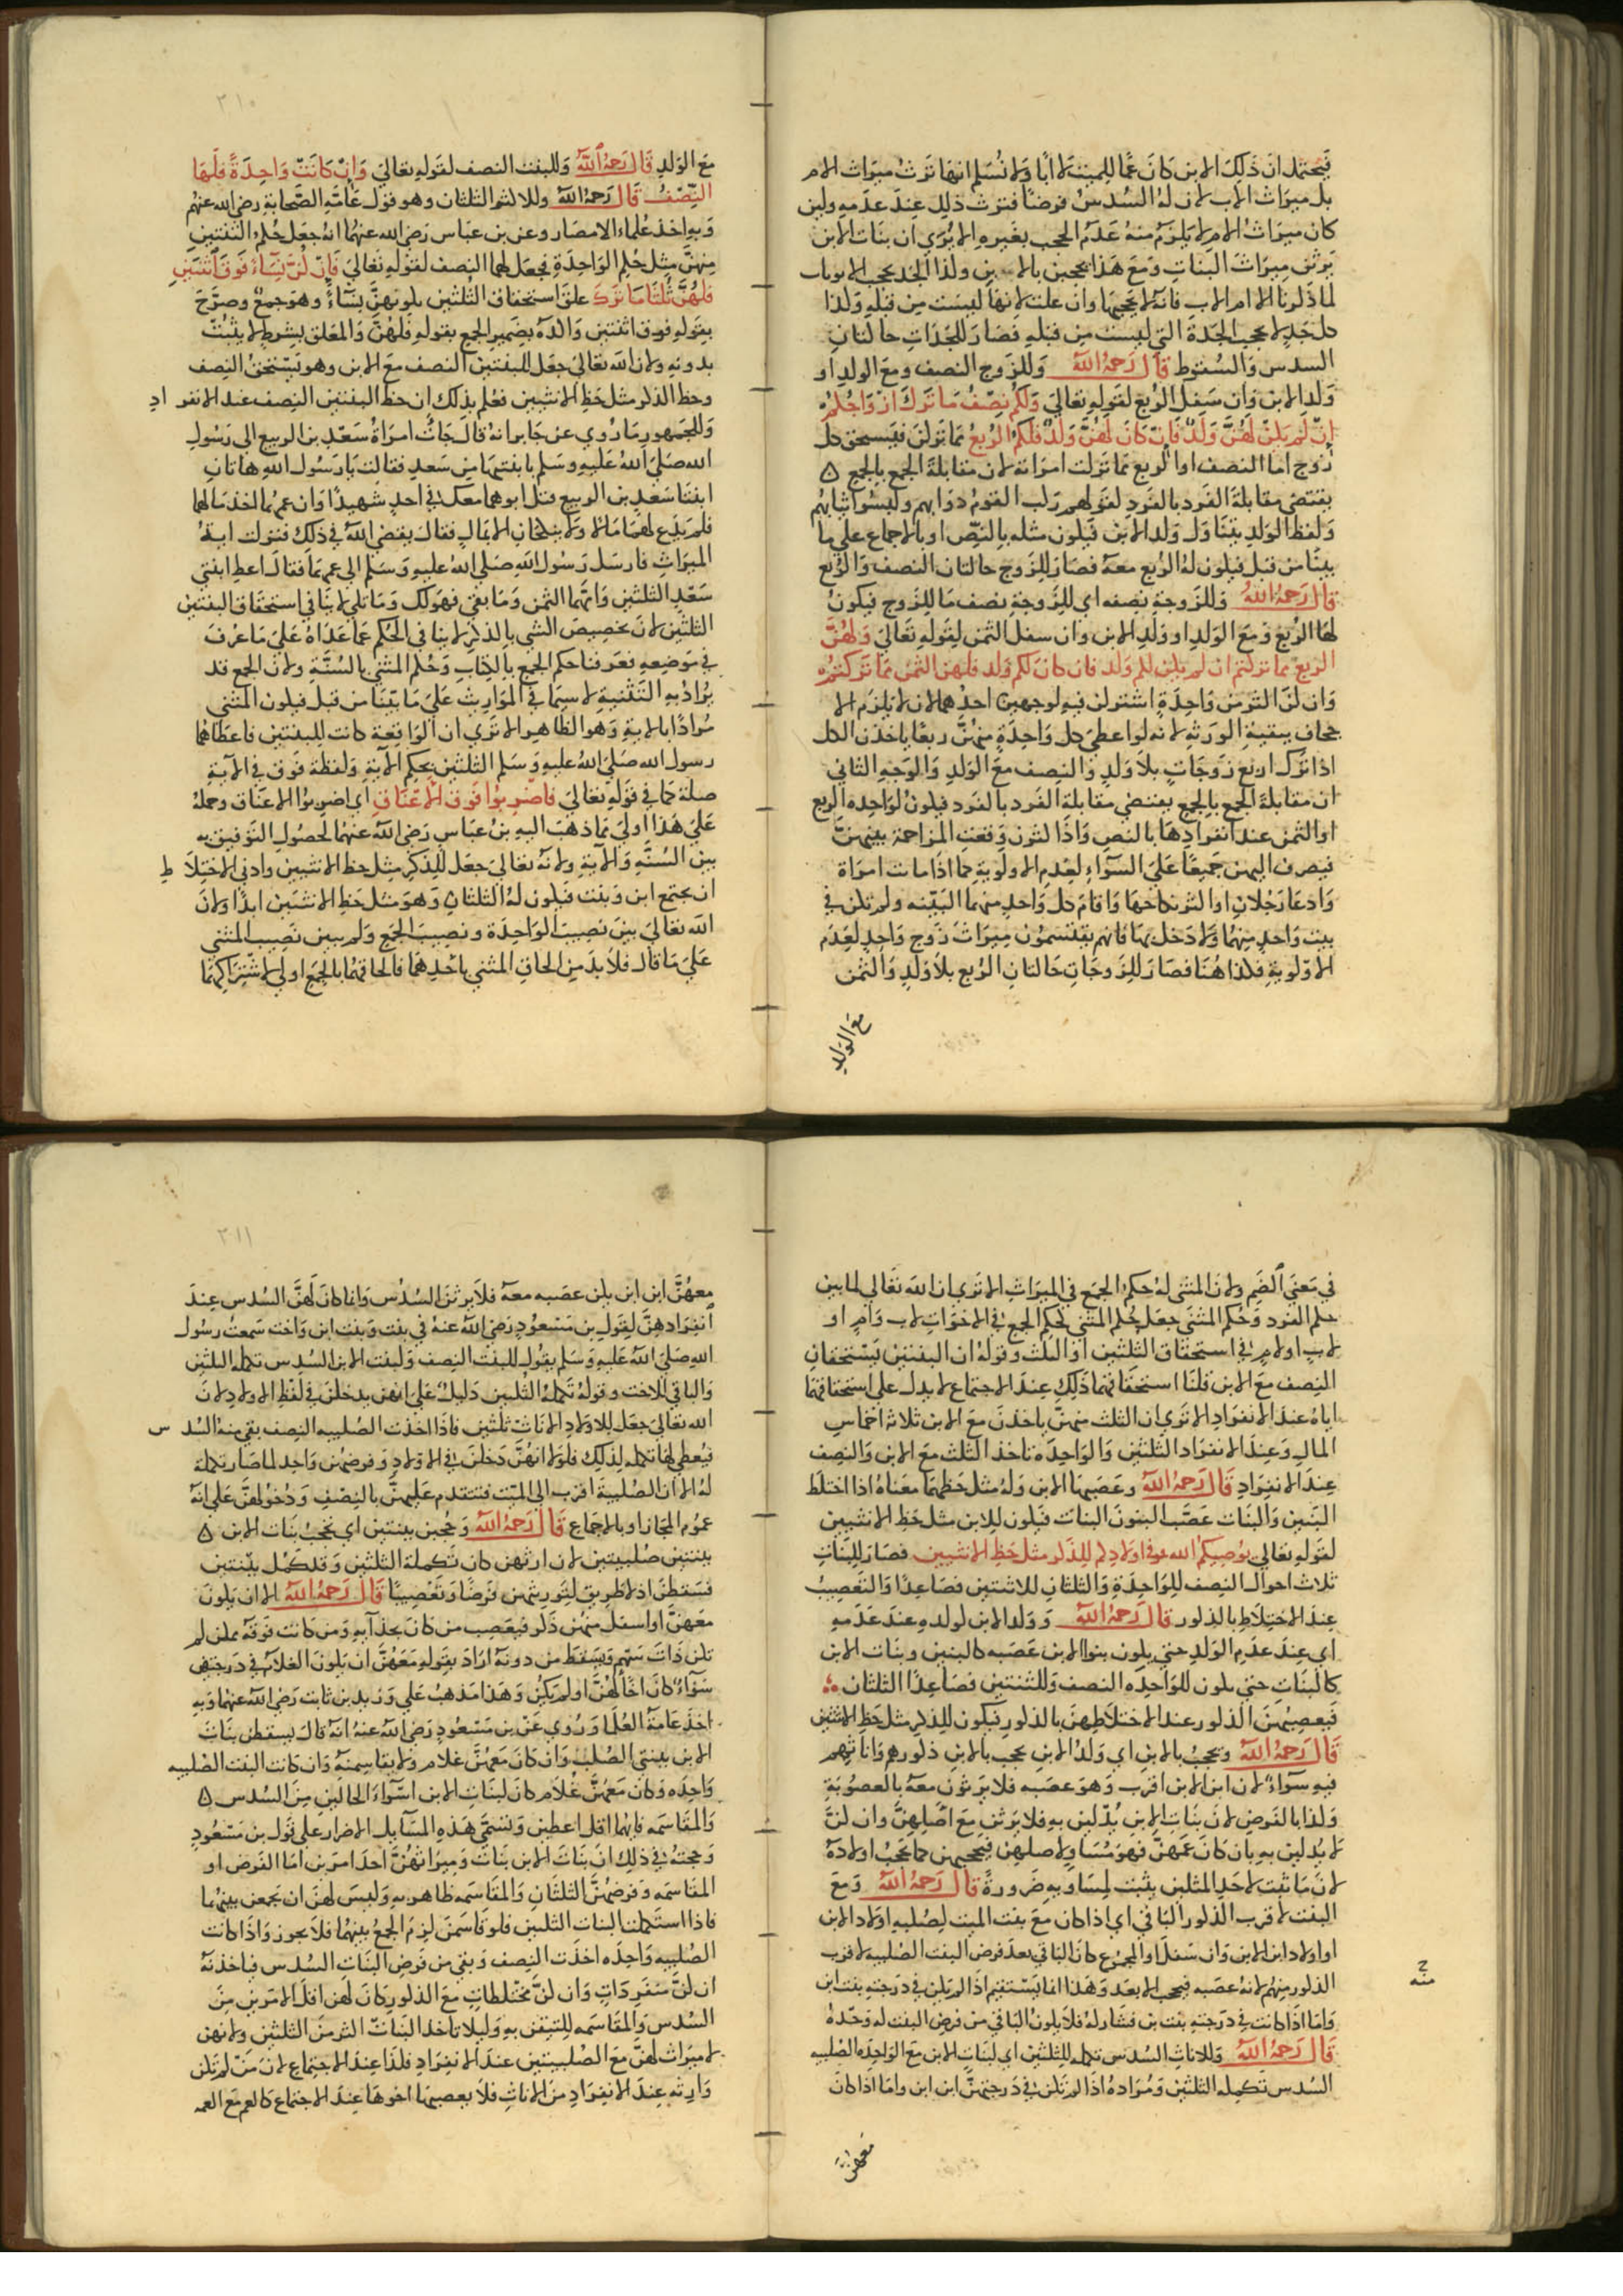 فيحتمل ان ذلك الابن كان عمًّا للميت لا ابًا ولا نُسَلم انها ترث ميراث الام
بل ميراث الاب لان له السدس فرضًا فترث ذلك عند عدمه ولين
كان ميراث الام لا يلزم منه عدم الحجب بغيره الا يُرى ان بنات الابن
يرثن ميراث البنات ومع هذا يحجبن بالابن ولذا الجد يحجب الابويات
لما ذكرنا الا ام الاب فانه لا يحجبها وان علت لانها ليست من قبله ولذا
كل جد لا يحجب الجدة التي ليست من قبله فصار للجدات حالتان
السدس والسقوط قال رحمه الله وللزوج النصف ومع الولد او
ولد الابن وان سفل الربع لقوله تعالى ولكم نصف ما ترك ازواجكم
ان لم يكن لهن ولد فان كان لهن ولد فلكم الربع مما تركن فيستحق كل
زوج اما النصف او الربع مما تركت امراته لان مقابلة الجمع بالجمع ه
يقتضي مقابلة الفرد بالفرد لقولهم ركب القوم دوابهم ولبسوا ثيابهم
ولفظ الولد يتناول ولد الابن فيكون مثله بالنص او بالاجماع على ما
بينا من قبل فيكون له الربع معه فصار للزوج حالتان النصف والربع
قال رحمه الله وللزوجة نصفه اي للزوجة نصف ما للزوج فيكون
لها الربع ومع الولد او ولد الابن وان سفل الثمن لقوله تعالى ولهن
الربع مما تركتم ان لم يكن لكم ولد فان كان لكم ولد فلهن الثمن مما تركتم
وان كن اكثر من واحدة اشتركن فيه لوجهين احدهما لان لا يلزم الا
جحاف ببقية الورثة لانه لو اعطي كل واحدة منهن ربعًا ياخذن الكل
اذا ترك اربع زوجات بلا ولد والنصف مع الولد والوجه الثاني
ان مقابلة الجمع بالجمع يقتضي مقابلة الفرد بالفرد فيكون لواحدة الربع
او الثمن عند انفرادها بالنص واذا اكثرن وقعت المزاحمة بينهن
فيصرف اليهن جميعًا على السواء لعدم الاولوية كما اذا ماتت امراة
وادعا رجلان او اكثر نكاحها واقام كل واحد منهما البينه ولم تكن في
بيت واحد منهما ولا دخل بها فانهم يقتسمون ميراث زوج واحد لعدم
الاولوية فكذا هنا فصار للزوجات حالتان الربع بلا ولد والثمن
مع الولد
٣١٠
مع الولد قال رحمه الله وللبنت النصف لقوله تعالى وان كانت واحدة فلها
النصف قال رحمه الله وللاكثر الثلثان وهو قول عامة الصحابة رضي الله عنهم
وبه اخذ علماء الامصار وعن بن عباس رضي الله عنهما انه جعل حكم الثنتين
منهن مثل حكم الواحدة فجعل لهما النصف لقوله تعالى فان كن نساء فوق اثنتين
فلهن ثلثا ما ترك علق استحقاق الثلثين بكونهن نساء وهو جمع وصرح
بقوله فوق اثنتين واكده بضمير الجمع بقوله فلهن والمعلق بشرط لا يثبت
بدونه ولان الله تعالى جعل للبنتين النصف مع الابن وهو يستحق النصف
وحظ الذكر مثل حظ الانثيين فعلم بذلك ان حظ البنتين النصف عند الانفراد
وللجمهور ما روي عن جابر انه قال جات امراة سعد بن الربيع الى رسول
الله صلى الله عليه وسلم بابنتيها من سعد فقالت يا رسول الله هاتان
ابنتا سعد بن الربيع قتل ابوهما معك في احد شهيدًا وان عمهما اخذ مالهما
فلم يدع لهما مالا ولا ينكحان الا بمال فقال يقضي الله في ذلك فنزلت اية
الميراث فارسل رسول الله صلى الله عليه وسلم الى عمهما فقال اعط ابنتي
سعد الثلثين وامهما الثمن وما بقي فهو لك وما تلي لا ينافي استحقاق البنتين
الثلثين لان تخصيص الشي بالذكر لا ينافي الحكم عما عداه على ما عرف
في موضعه فعرفنا حكم الجمع بالكتاب وحكم المثنى بالسنة ولان الجمع قد
يراد به التثنية لا سيما في المواريث على ما بينا من قبل فيكون المثنى
مرادًا بالاية وهو الظاهر الا ترى ان الواقعة كانت للبنتين فاعطاهما
رسول الله صلى الله عليه وسلم الثلثين بحكم الاية ولفظة فوق في الاية
صلة كما في قوله تعالى فاضربوا فوق الاعناق اي اضربوا الاعناق وحمله
على هذا اولى مما ذهب اليه بن عباس رضي الله عنهما لحصول التوفيق به
بين السنة والاية ولانه تعالى جعل للذكر مثل حظ الانثيين وادنى الاختلاط
ان يجتمع ابن وبنت فيكون له الثلثان وهو مثل حظ الانثيين ابدًا ولان
الله تعالى بين نصيب الواحدة ونصيب الجمع ولم يبين نصيب المثنى
على ما قال فلا بد من الحاق المثنى باحدهما فالحاقهما بالجمع اولى لاشتراكهما
في معنى الضم ولان المثنى له حكم الجمع في الميراث الا ترى ان الله تعالى لما بين
حكم الفرد وحكم المثنى جعل حكم المثنى كحكم الجمع في الاخوات لاب وام او
لاب او لام في استحقاق الثلثين او الثلث وقوله ان البنتين يستحقان
النصف مع الابن قلنا استحقاقهما ذلك عند الاجتماع لا يدل على استحقاقهما
اياه عند الانفراد الا ترى ان الثلث منهن ياخذن مع الابن ثلاثة اخماس
المال وعند الانفراد الثلثين والواحدة تاخذ الثلث مع الابن والنصف
عند الانفراد قال رحمه الله وعصبها الابن وله مثل حظهما معناه اذا اختلط
البنين والبنات عصب البنون البنات فيكون للابن مثل حظ الانثيين
لقوله تعالى يوصيكم الله في اولادكم للذكر مثل حظ الانثيين فصار للبنات
ثلاث احوال النصف للواحدة والثلثان للاثنتين فصاعدًا والتعصيب
عند الاختلاط بالذكور قال رحمه الله وولد الابن كولده عند عدمه
اي عند عدم الولد حتى يكون بنوا الابن عصبه كالبنين وبنات الابن
كالبنات حتى يكون للواحده النصف وللثنتين فصاعدًا الثلثان
فيعصبهن الذكور عند الاختلاطهن بالذكور فيكون للذكر مثل حظ الانثيين
قال رحمه الله ويحجب بالابن اي ولد الابن يحجب بالابن ذكورهم واناثهم
فيه سواء لان ابن الابن اقرب وهو عصبه فلا يرثون معه بالعصوبة
وكذا بالفرض لان بنات الابن يدلين به فلا يرثن مع اصلهن وان كن
لا يدلين به بان كان عمهن فهو مساو لاصلهن فيحجبهن كما يحجب اولاده
لان ما ثبت لاحد المثلين يثبت لمساويه ضرورة قال رحمه الله ومع
البنت لاقرب الذكور الباقي اي اذا كان مع بنت الميت لصلبه اولاد الابن
او اولاد ابن الابن وان سفل او المجموع كان الباقي بعد فرض البنت الصلبيه لاقرب
الذكور منهم لانه عصبه فيحجب الابعد وهذا انما يستقيم اذا لم يكن في درجته بنت ابن
واما اذا كانت في درجته بنت بن فتشاركه فلا يكون الباقي من فرض البنت له وحده
قال رحمه الله وللاناث السدس تكمله للثلثين اي لبنات الابن مع الواحده الصلبيه
السدس تكمله الثلثين ومراده اذا لم تكن في درجتهن ابن ابن واما اذا كان
معهن
٣١١
معهن ابن ابن يكن عصبه معه فلا يرثن السدس وانما كان لهن السدس عند
انفرادهن لقول بن مسعود رضي الله عنه في بنت وبنت ابن واخت سمعت رسول
الله صلى الله عليه وسلم يقول للبنت النصف ولبنت الابن السدس تكمله الثلثين
والباقي للاخت وقوله تكملة الثلثين دليل على انهن يدخلن في لفظ الاولاد لان
الله تعالى جعل للاولاد الاناث ثلثين فاذا اخذت الصلبيه النصف بقي منه السدس
فيعطي لها تكمله لذلك فلولا انهن دخلن في الاولاد وفرضهن واحد لما صار تكملة
له الا ان الصلبية اقرب الى الميت فتتقدم عليهن بالنصف ودخولهن على انه
عموم المجاز او بالاجماع قال رحمه الله وحجبن ببنتين اي تحجب بنات الابن ه
ببنتين صلبيتين لان ارثهن كان تكملة الثلثين وقد كمل ببنتين
فسقطن اذ لا طريق لتوريثهن فرضًا وتعصيبًا قال رحمه الله الا ان يكون
معهن او اسفل منهن ذكر فيعصب من كان بحذايه ومن كانت فوقه ممن لم
تكن ذات سهم ويسقط من دونه اراد بقوله معهن ان يكون الغلام في درجتهن
سواء كان اخًا لهن او لم يكن وهذا مذهب علي وزيد بن ثابت رضي الله عنهما وبه
اخذ عامة العلما وروي عن بن مسعود رضي الله عنه انه قال يسقطن بنات
الابن ببنتي الصلب وان كان معهن غلام ولا يقاسمنه وان كانت البنت الصلبيه
واحده وكان معهن غلام كان لبنات الابن اسوا الحالين من السدس ه
والمقاسمه فايهما اقل اعطين وتسمى هذه المسايل الاضرار على قول بن مسعود
وحجته في ذلك ان بنات الابن بنات وميراثهن احد امرين اما الفرض او
المقاسمه وفرضهن الثلثان والمقاسمه ظاهر به وليس لهن ان يجمعن بينهما
فاذا استكملت البنات الثلثين فلو قاسمن لزم الجمع بينهما فلا يجوز واذا كانت
الصلبيه واحده اخذت النصف وبقي من فرض البنات السدس فياخذنه
ان كن منفردات وان كن مختلطات مع الذكور كان لهن اقل الامرين من
السدس والمقاسمه للتيقن به وليلا تاخذ البنات اكثر من الثلثين ولانهن
لا ميراث لهن مع الصلبيتين عند الانفراد فكذا عند الاجتماع لان من لم تكن
وارثه عند الانفراد من الاناث فلا يعصبها اخوها عند الاجتماع كالعم مع العمه